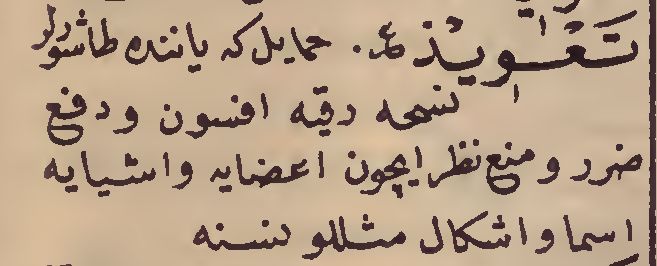 تعويذ ع. حمايل كه ياننده طاشورلر
نسخه رقيه افسون و دفع
ضرر و منع نظر ايچون اعضايه و اشيايه
اسما و اشكال مثللو نسنه